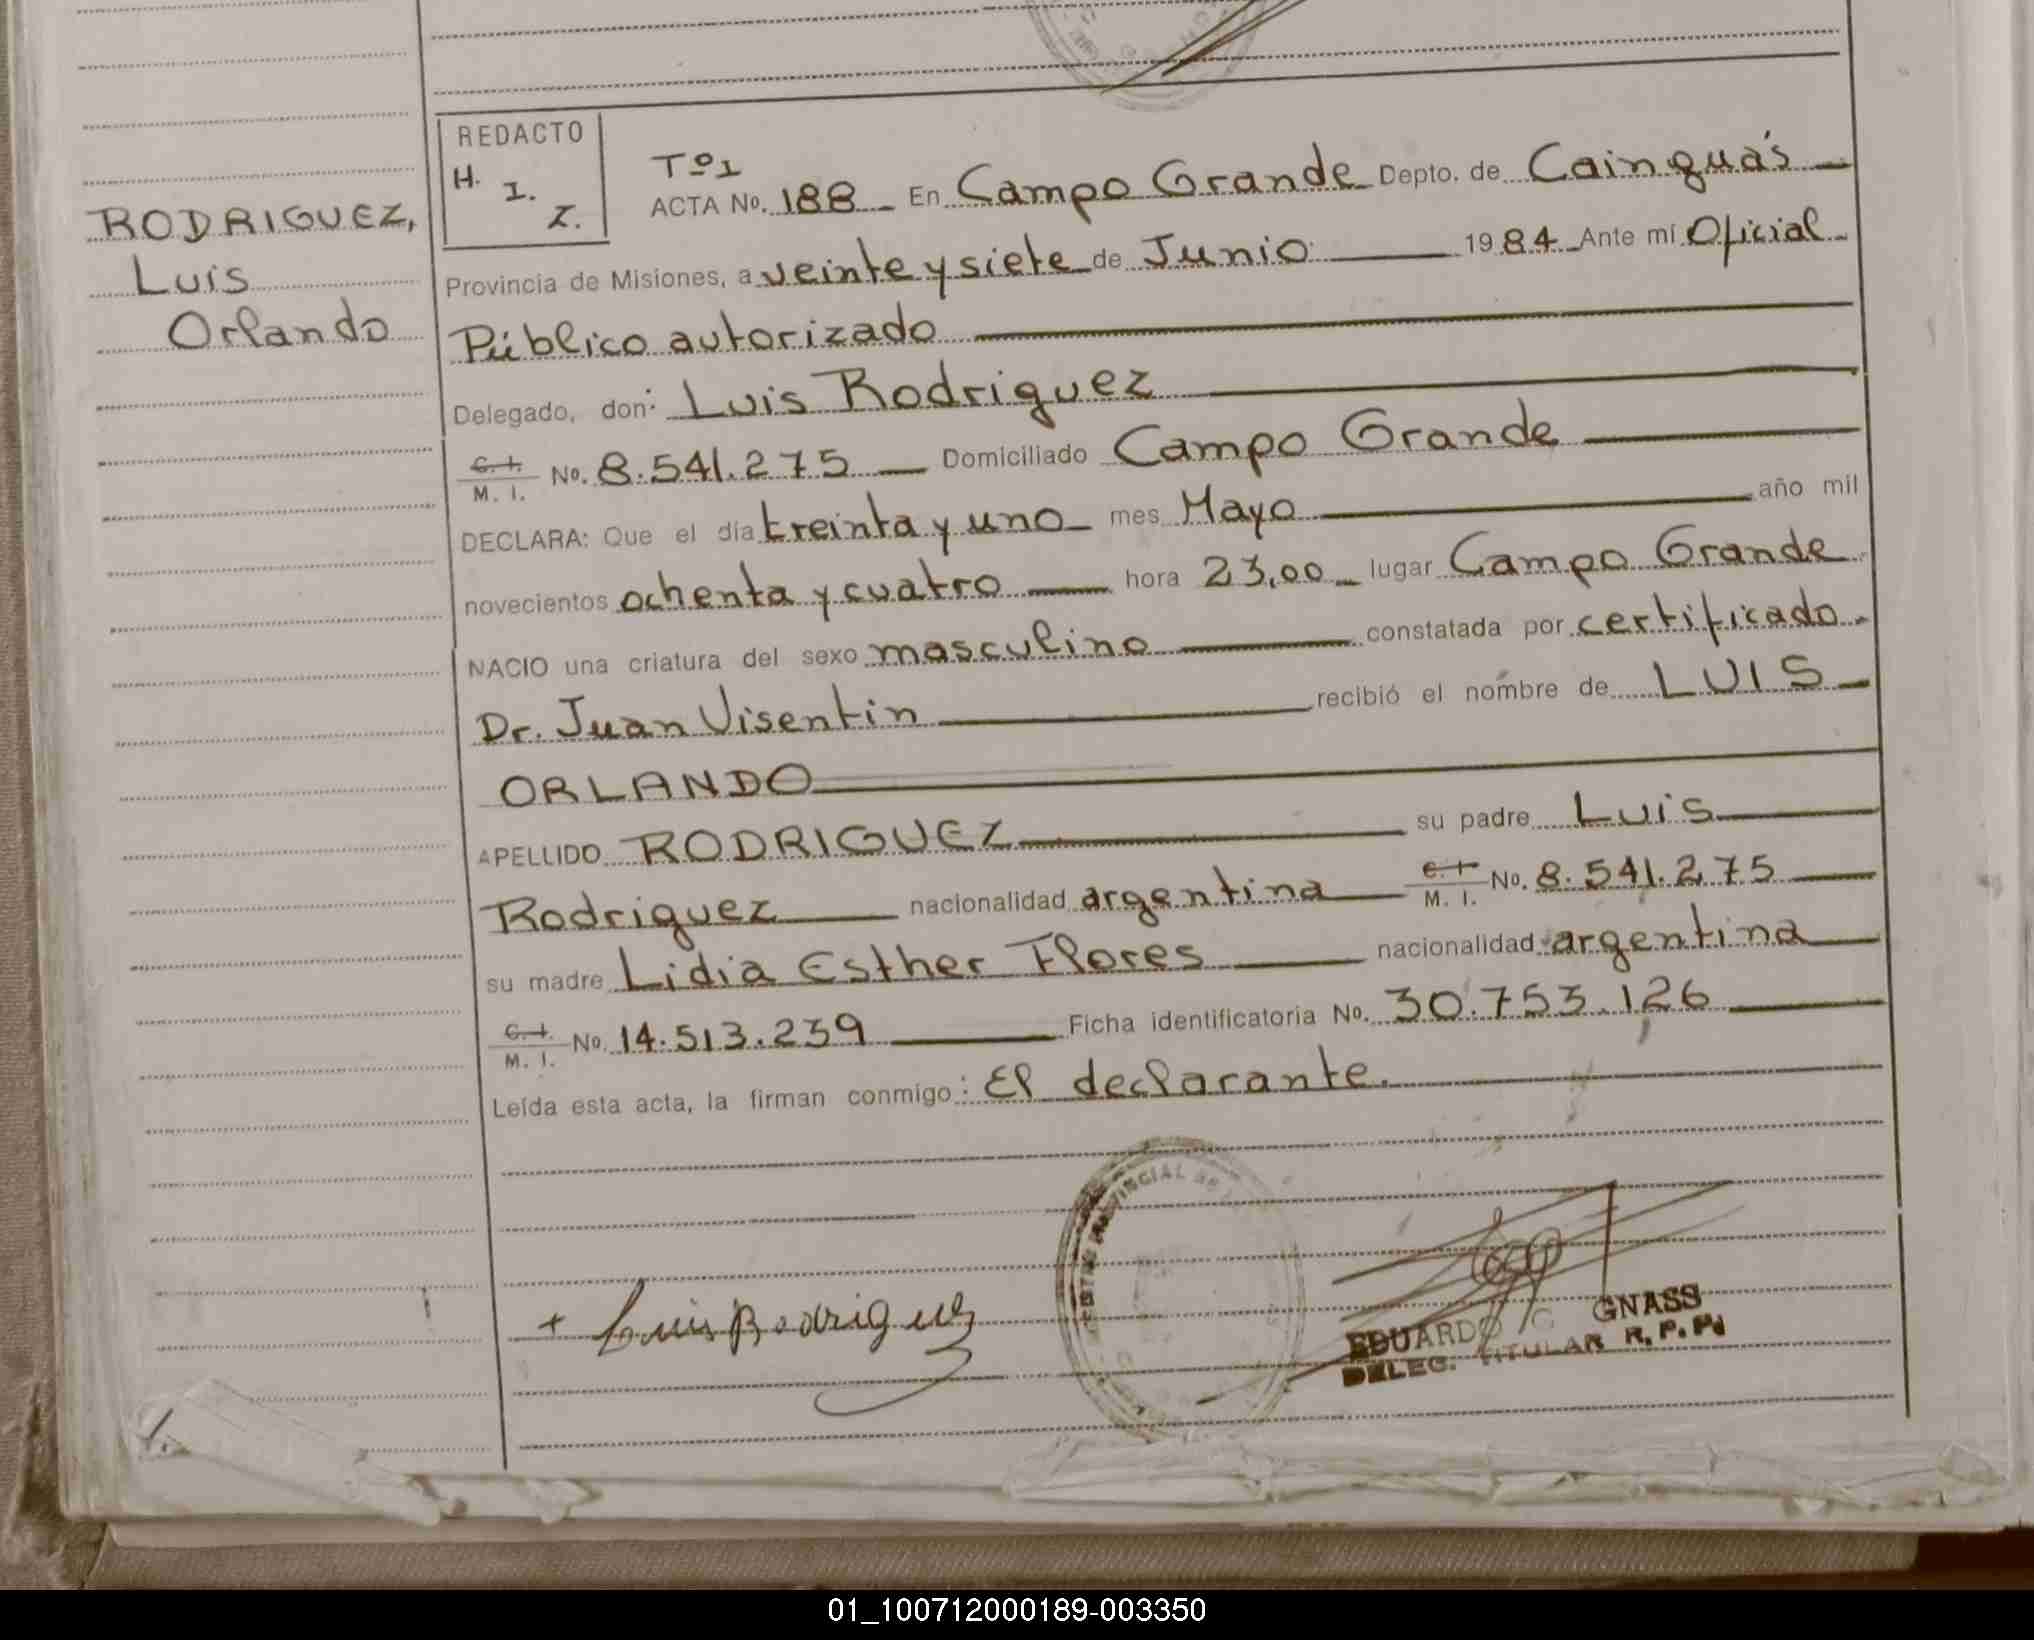 RODRIGUEZ,
Luis
Orlando
REDACTO
H. I. Z.
Tº1
ACTA No. 188 En Campo Grande Depto. de Cainguás
Provincia de Misiones, a veinte y siete de Junio 1984 Ante mí Oficial
Público autorizado
Delegado, don: Luis Rodriguez
C.I. M. I. No. 8.541.275 Domiciliado Campo Grande
DECLARA: Que el día treinta y uno mes Mayo año mil
novecientos ochenta y cuatro hora 23,00 lugar Campo Grande
NACIO una criatura del sexo masculino constatada por certificado
Dr. Juan Visentin recibió el nombre de LUIS
ORLANDO
APELLIDO RODRIGUEZ su padre Luis
Rodriguez nacionalidad argentina C.I. M. I. No. 8.541.275
su madre Lidia Esther Flores nacionalidad argentina
C.I. M. I. No. 14.513.239 Ficha identificatoria No. 30.753.126
Leída esta acta, la firman conmigo: El declarante.
+ Luis Rodriguez
EDUARDO GNASS
DELEG. TITULAR R. P. P.
01_100712000189-003350